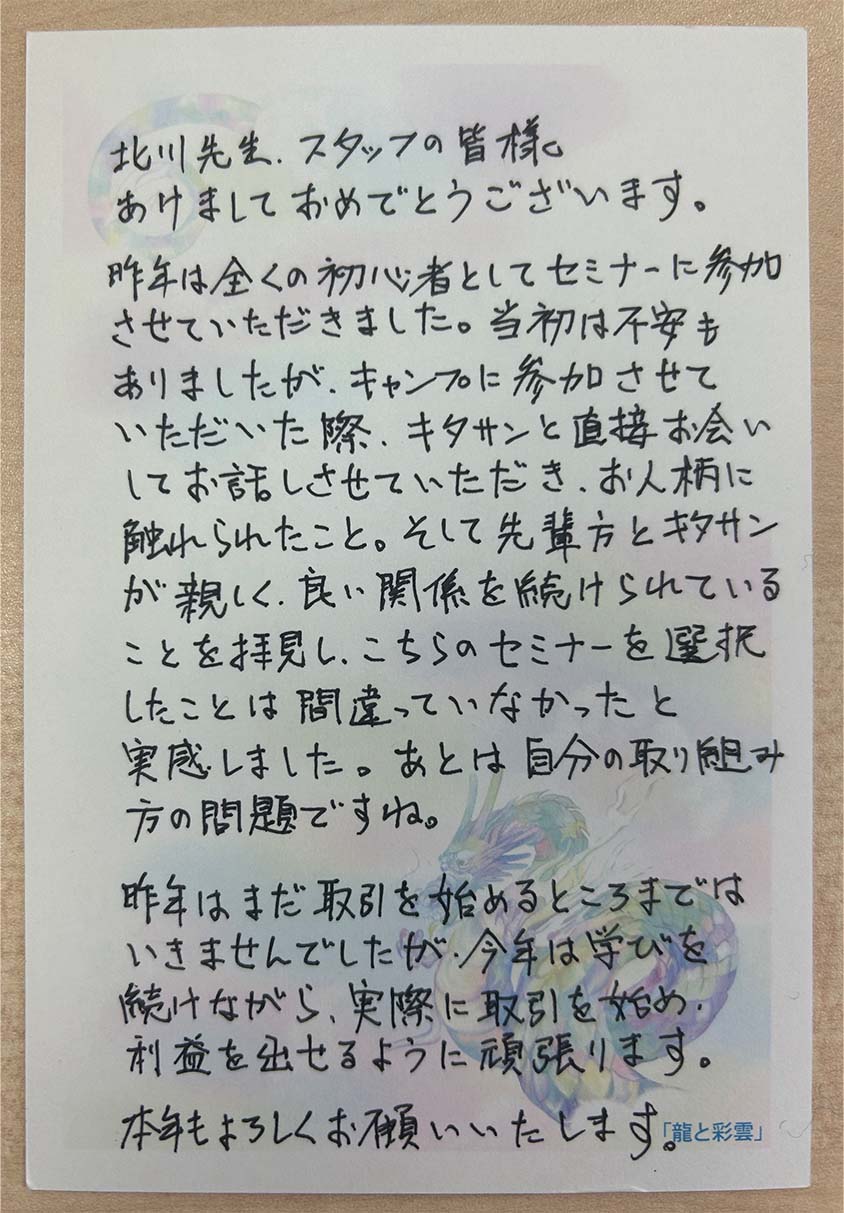 北川先生、スタッフの皆様。
あけましておめでとうございます。
昨年は全くの初心者としてセミナーに参加
させていただきました。当初は不安も
ありましたが、キャンプに参加させて
いただいた際、キタサンと直接お会い
してお話しさせていただき、お人柄に
触れられたこと。そして先輩方とキタサン
が親しく、良い関係を続けられている
ことを拝見し、こちらのセミナーを選択
したことは間違っていなかったと
実感しました。あとは自分の取り組み
方の問題ですね。
昨年はまだ取引を始めるところまでは
いきませんでしたが、今年は学びを
続けながら、実際に取引を始め、
利益を出せるように頑張ります。
本年もよろしくお願いいたします。
「龍と彩雲」